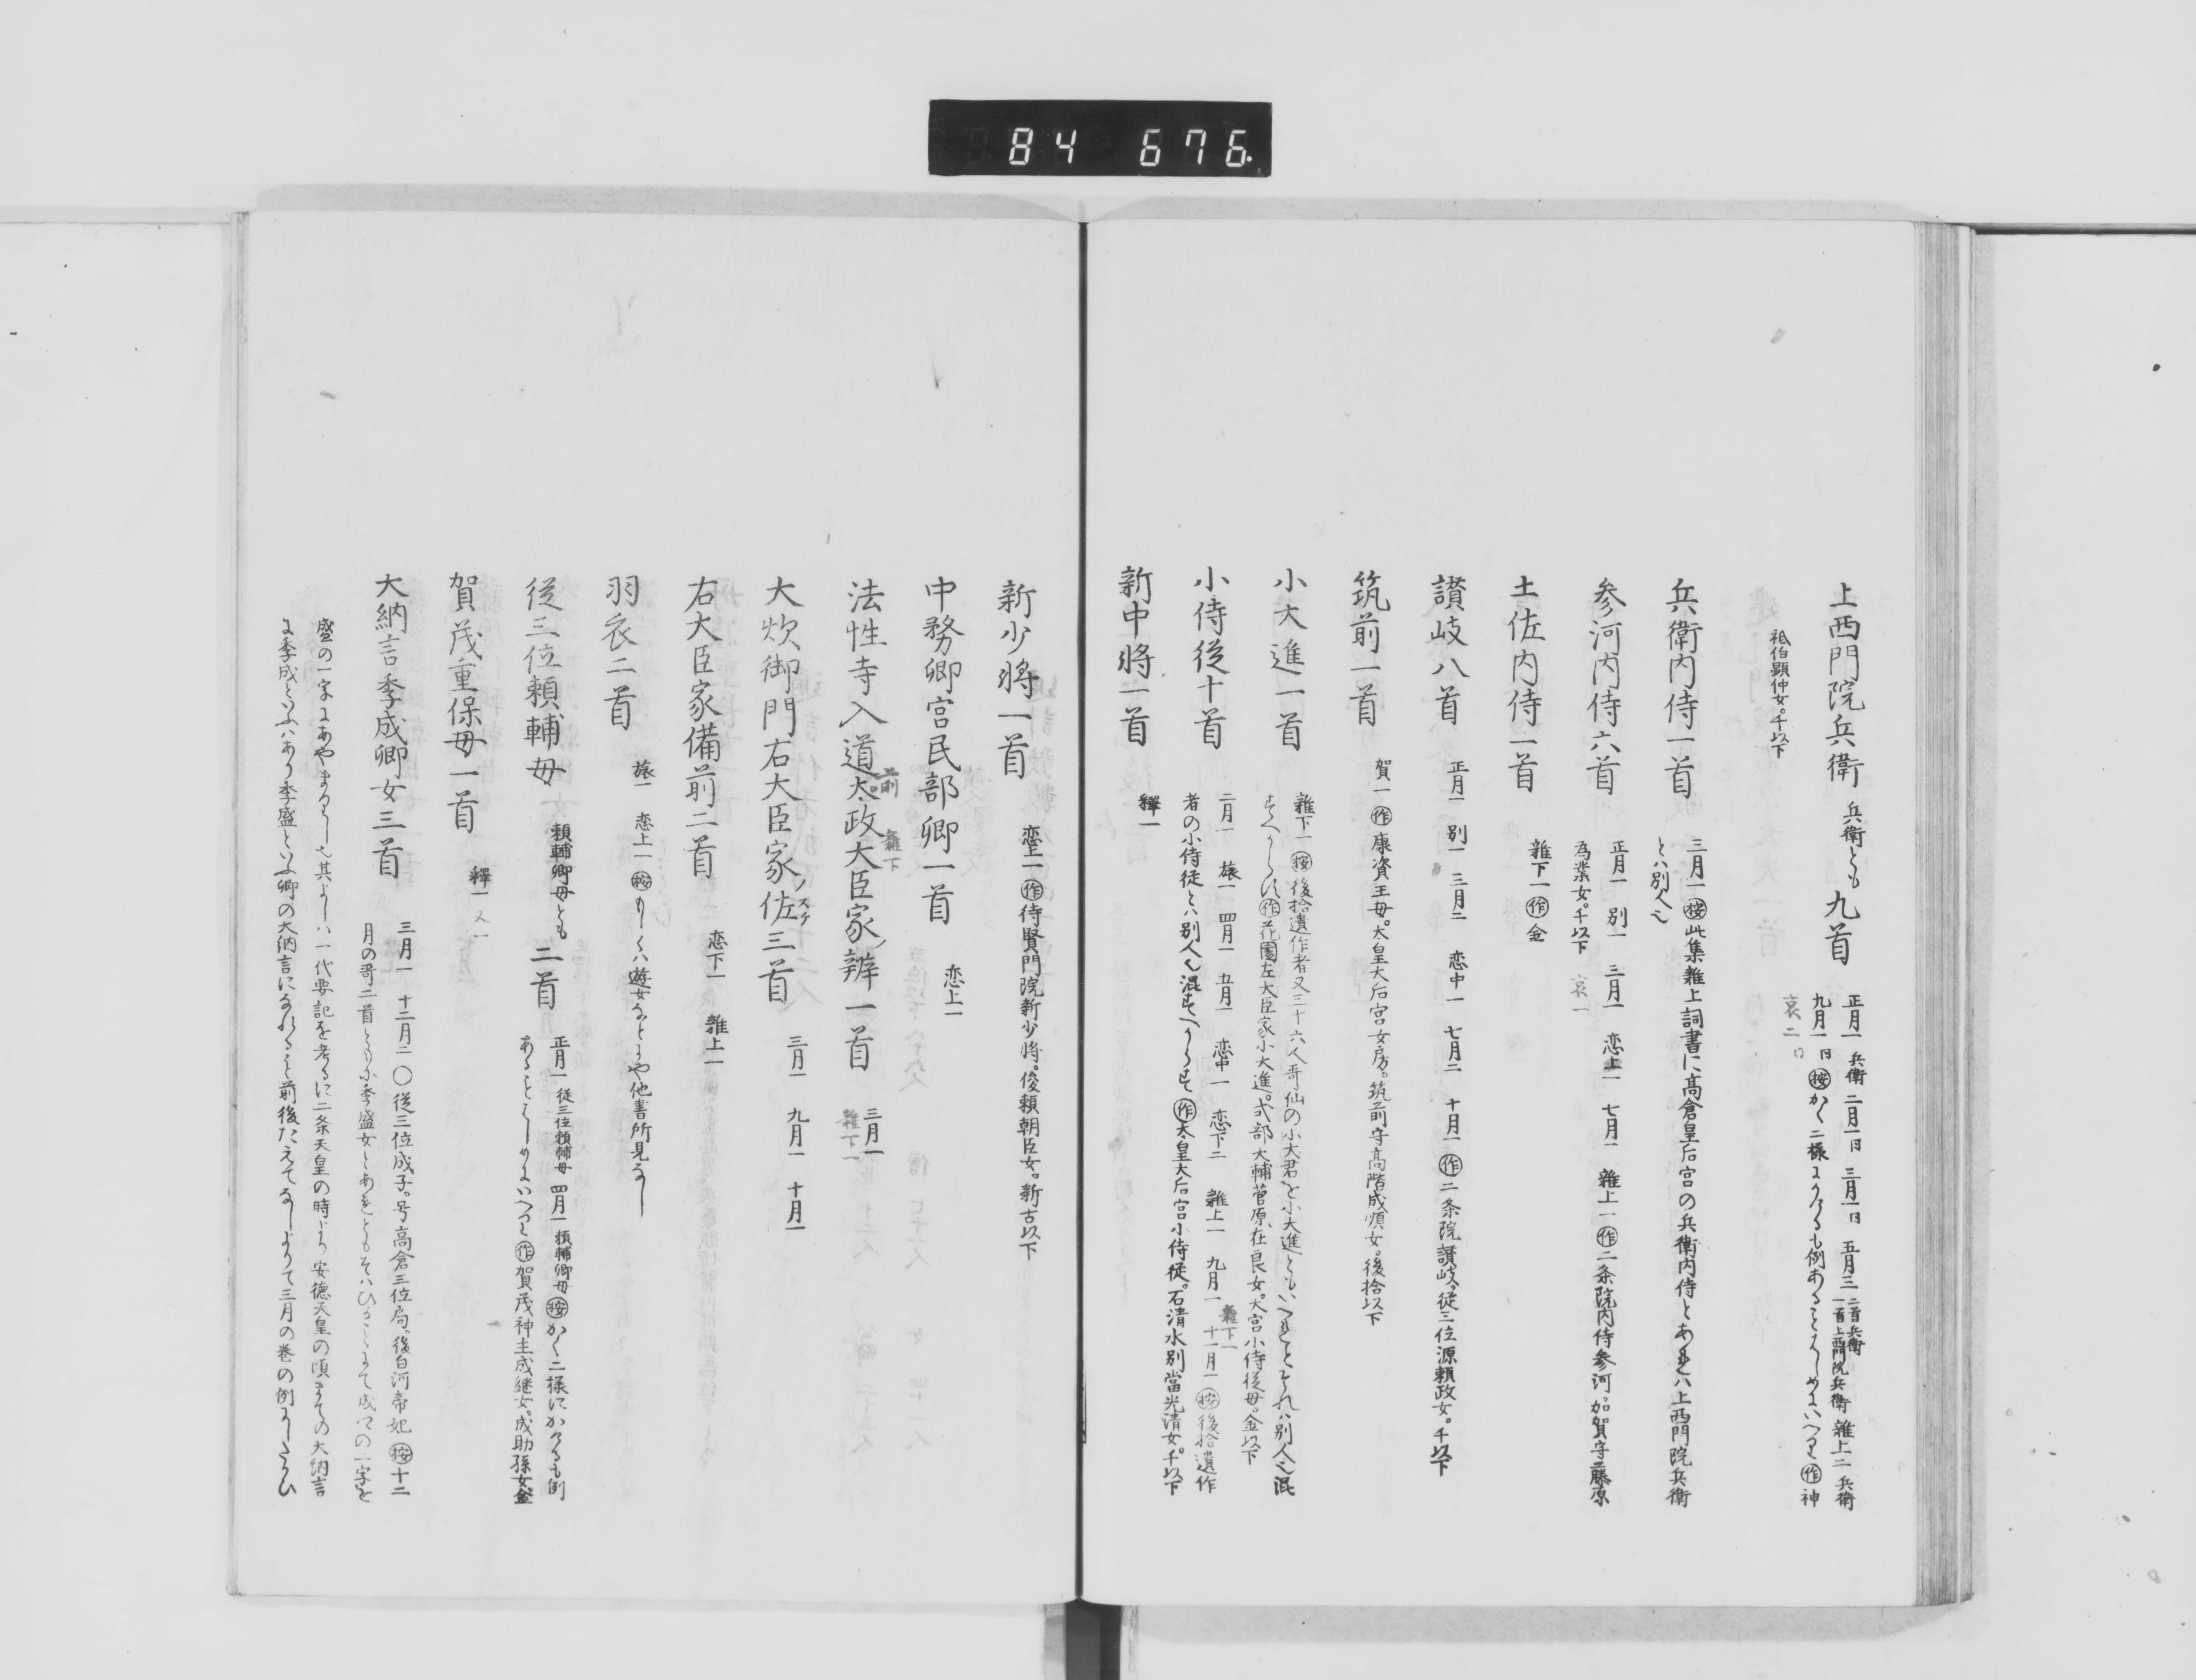 84 676.
上西門院兵衛 兵衛とも 九首
正月一 兵衛 二月一日 三月一日 五月三 二首兵衛 一首上西門院兵衛 雜上二 兵衛
九月一日 ㊟按かく二様
哀二
作 神
祗伯顕仲女。千以下
兵衛内侍一首
三月一 按此集雜上詞書に高倉皇后宮の兵衛内侍とあれハ上西門院兵衛
とハ別人也
参河内侍六首
正月一 別一 三月一 恋上一 七月一 雜上一 作二条院内侍参河。加賀守藤原
為業女。千以下 哀一
土佐内侍一首
雜下一 作 金
讃岐八首
正月一 別一 三月二 恋中一 七月二 十月一 作二条院讃岐。従三位源頼政女。千以下
筑前一首
賀一 作康資王母。太皇大后宮女房。筑前守高階成順女。後拾以下
小大進一首
雜下一 按後拾遺作者又三十六人哥仙の小大君を小大進ともいへれとそれハ別人也混
作花園左大臣家小大進。式部大輔菅原在良女。大宮小侍従母。金以下
小侍従十首
二月一 旅一 四月一 五月一 恋中一 恋下二 雜上一 九月一 雜下一 十一月一 按後拾遺作
者の小侍従とハ別人也混 作太皇大后宮小侍従。石清水別當光清女。千以下
新中将一首
釋一
新少将一首
恋上一 作待賢門院新少将。俊頼朝臣女。新古以下
中務卿宮民部卿一首
恋上一
法性寺入道前太政大臣家ノ辨一首
雜下
三月一
雜下一
大炊御門右大臣家ノ佐スケ三首
三月一 九月一 十月一
右大臣家備前二首
恋下一 雜上一
羽衣二首
旅一 恋上一 按もしくハ遊女なとにや他書所見なし
従三位頼輔母 頼輔卿母とも 二首
正月一 従三位頼輔母 四月一 頼輔卿母 按かく二様にかけるも例
作賀茂神主成継女。成助孫女金
賀茂重保母一首
釋一
又一
大納言季成卿女三首
三月一 十二月二〇従三位成子。号高倉三位局。後白河帝妃 按十二
月の哥二首ともに季盛女とあれともそハひかことにて成ヲの二字を
盛の一字にあやまるなるへし其よしハ一代要記を考るに二条天皇の時より安徳天皇の頃まての大納言
に季成といふハあり季盛といふ卿の大納言になれること前後たえてなしよりて三月の巻の例